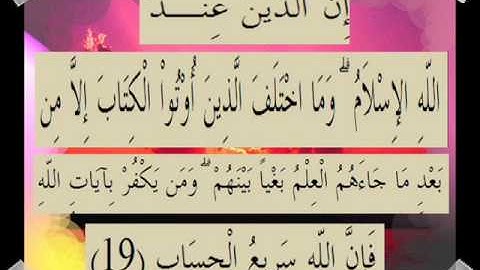 إِنَّ الدِّينَ عِنْـــدَ
اللّهِ الإِسْلاَمُ ۗ وَمَا اخْتَلَفَ الَّذِينَ أُوْتُواْ الْكِتَابَ إِلاَّ مِن
بَعْدِ مَا جَاءَهُمُ الْعِلْمُ بَغْياً بَيْنَهُمْ ۗ وَمَن يَكْفُرْ بِآيَاتِ اللّهِ
فَإِنَّ اللّهَ سَرِيعُ الْحِسَابِ (19)